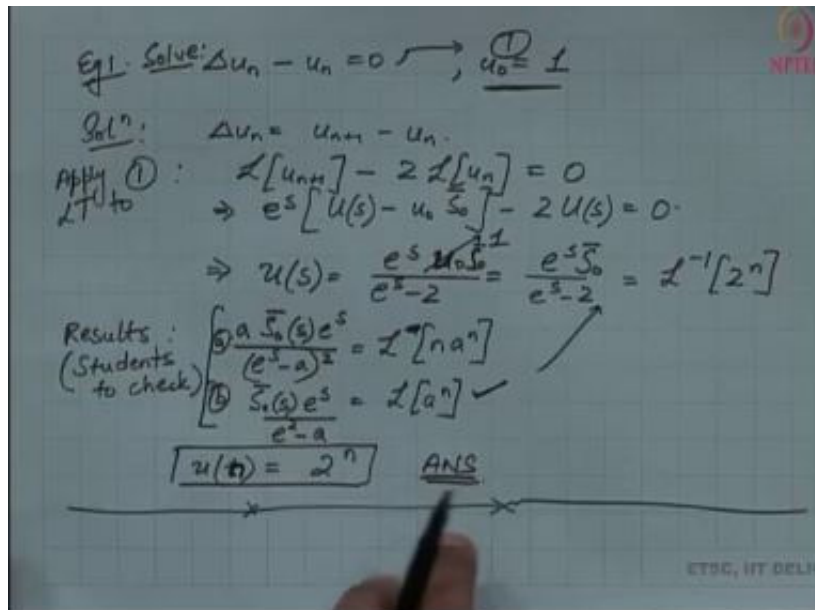 Eg 1. Solve: Δu_n − u_n = 0 → ①, u_0 = 1
NPTEL
Sol^n: Δu_n = u_{n+1} − u_n.
Apply LT to ①: ℒ[u_{n+1}] − 2ℒ[u_n] = 0
⇒ e^s [U(s) − u_0 S̄_0] − 2U(s) = 0.
⇒ U(s) = e^s u_0 S̄_0 / (e^s − 2) = e^s S̄_0 / (e^s − 2) = ℒ^{-1}[2^n]
Results: (Students to check)
ⓐ a S̄_0(s) e^s / (e^s − a)^s = ℒ[n a^n]
ⓑ S̄_0(s) e^s / (e^2 − a) = ℒ[a^n] ✓
u(n) = 2^n ANS
ETSC, IIT DELH